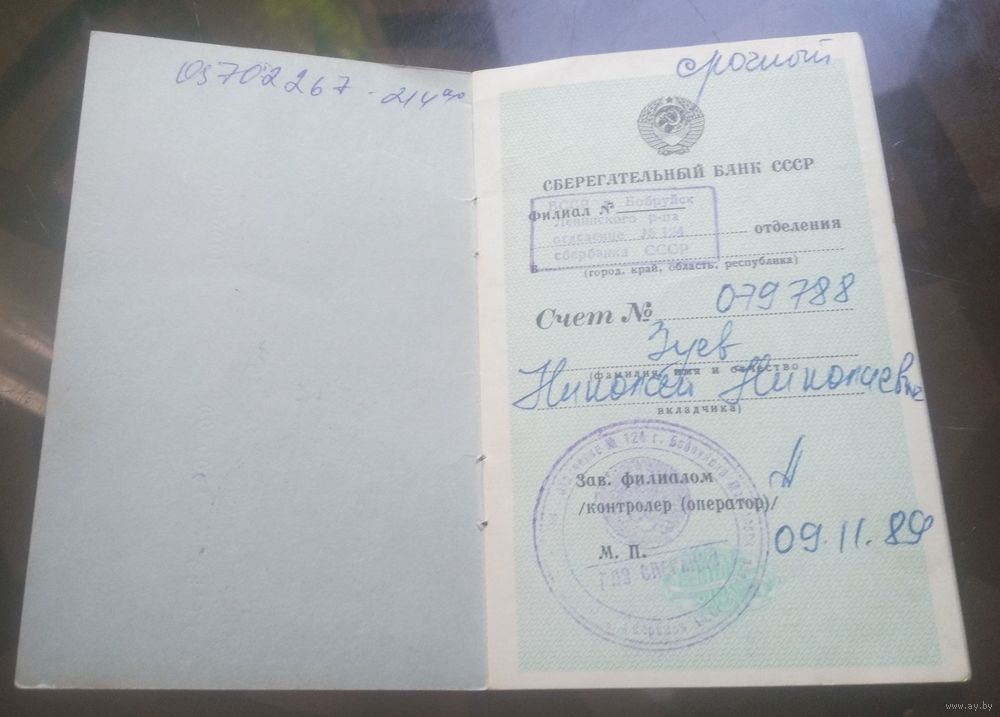 05702267 - 214
срочный
СБЕРЕГАТЕЛЬНЫЙ БАНК СССР
БССР г. Бобруйск
Филиал №
Ленинского р-на
отделения
отделение № 124
сбербанка СССР
в
(город, край, область, республика)
Счет № 079788
Зуев
(фамилия, имя и отчество
Николай Николаевич
вкладчика)
№ 124 г. Бобруйск
Зав. филиалом
/контролер (оператор)/
09.11.89
М. П.
www.ay.by